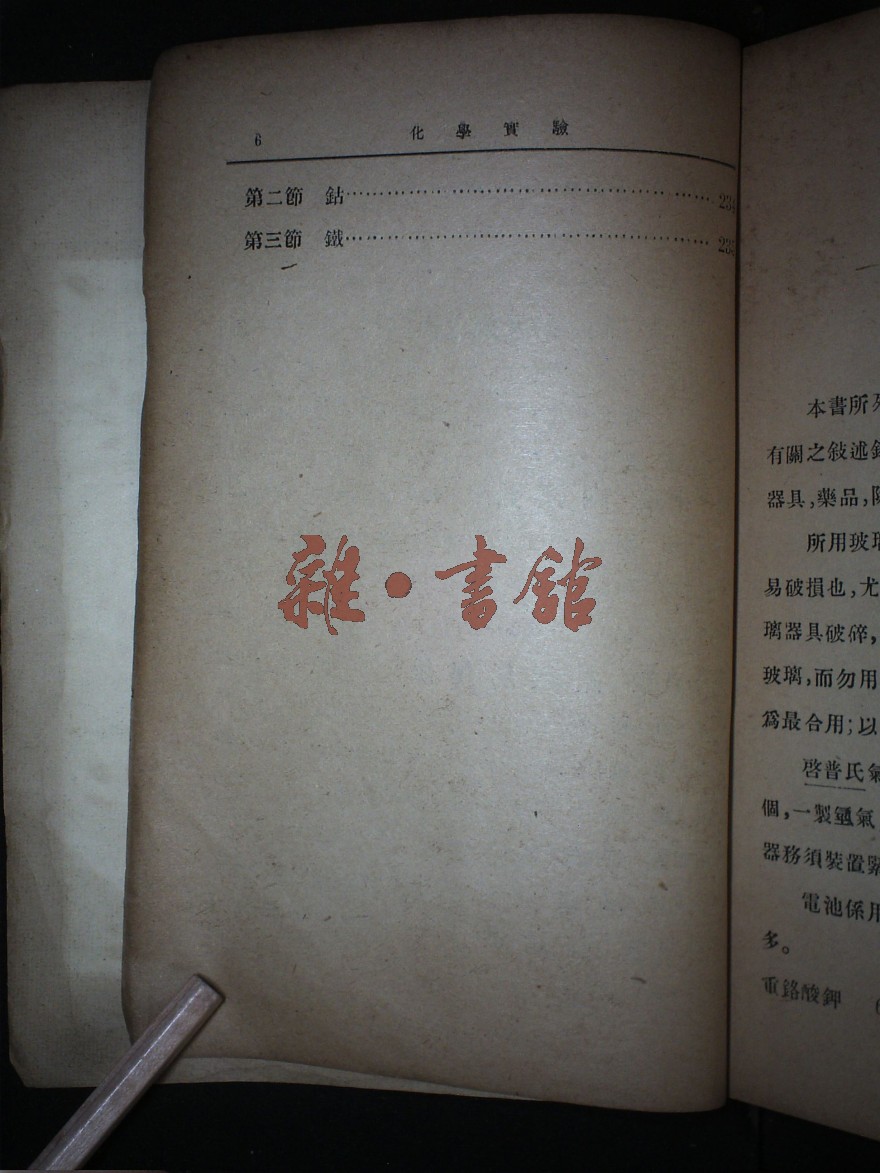 6 化學實驗
第二節 鈷……234
第三節 鐵……23
雜·書館
本書所
有關之敍述
器具,藥品,
所用玻
易破損也,尤
璃器具破碎,
玻璃,而勿用
爲最合用;以
啓普氏氣
個,一製氫氣
器務須裝置緊
電池係用
多。
重鉻酸鉀